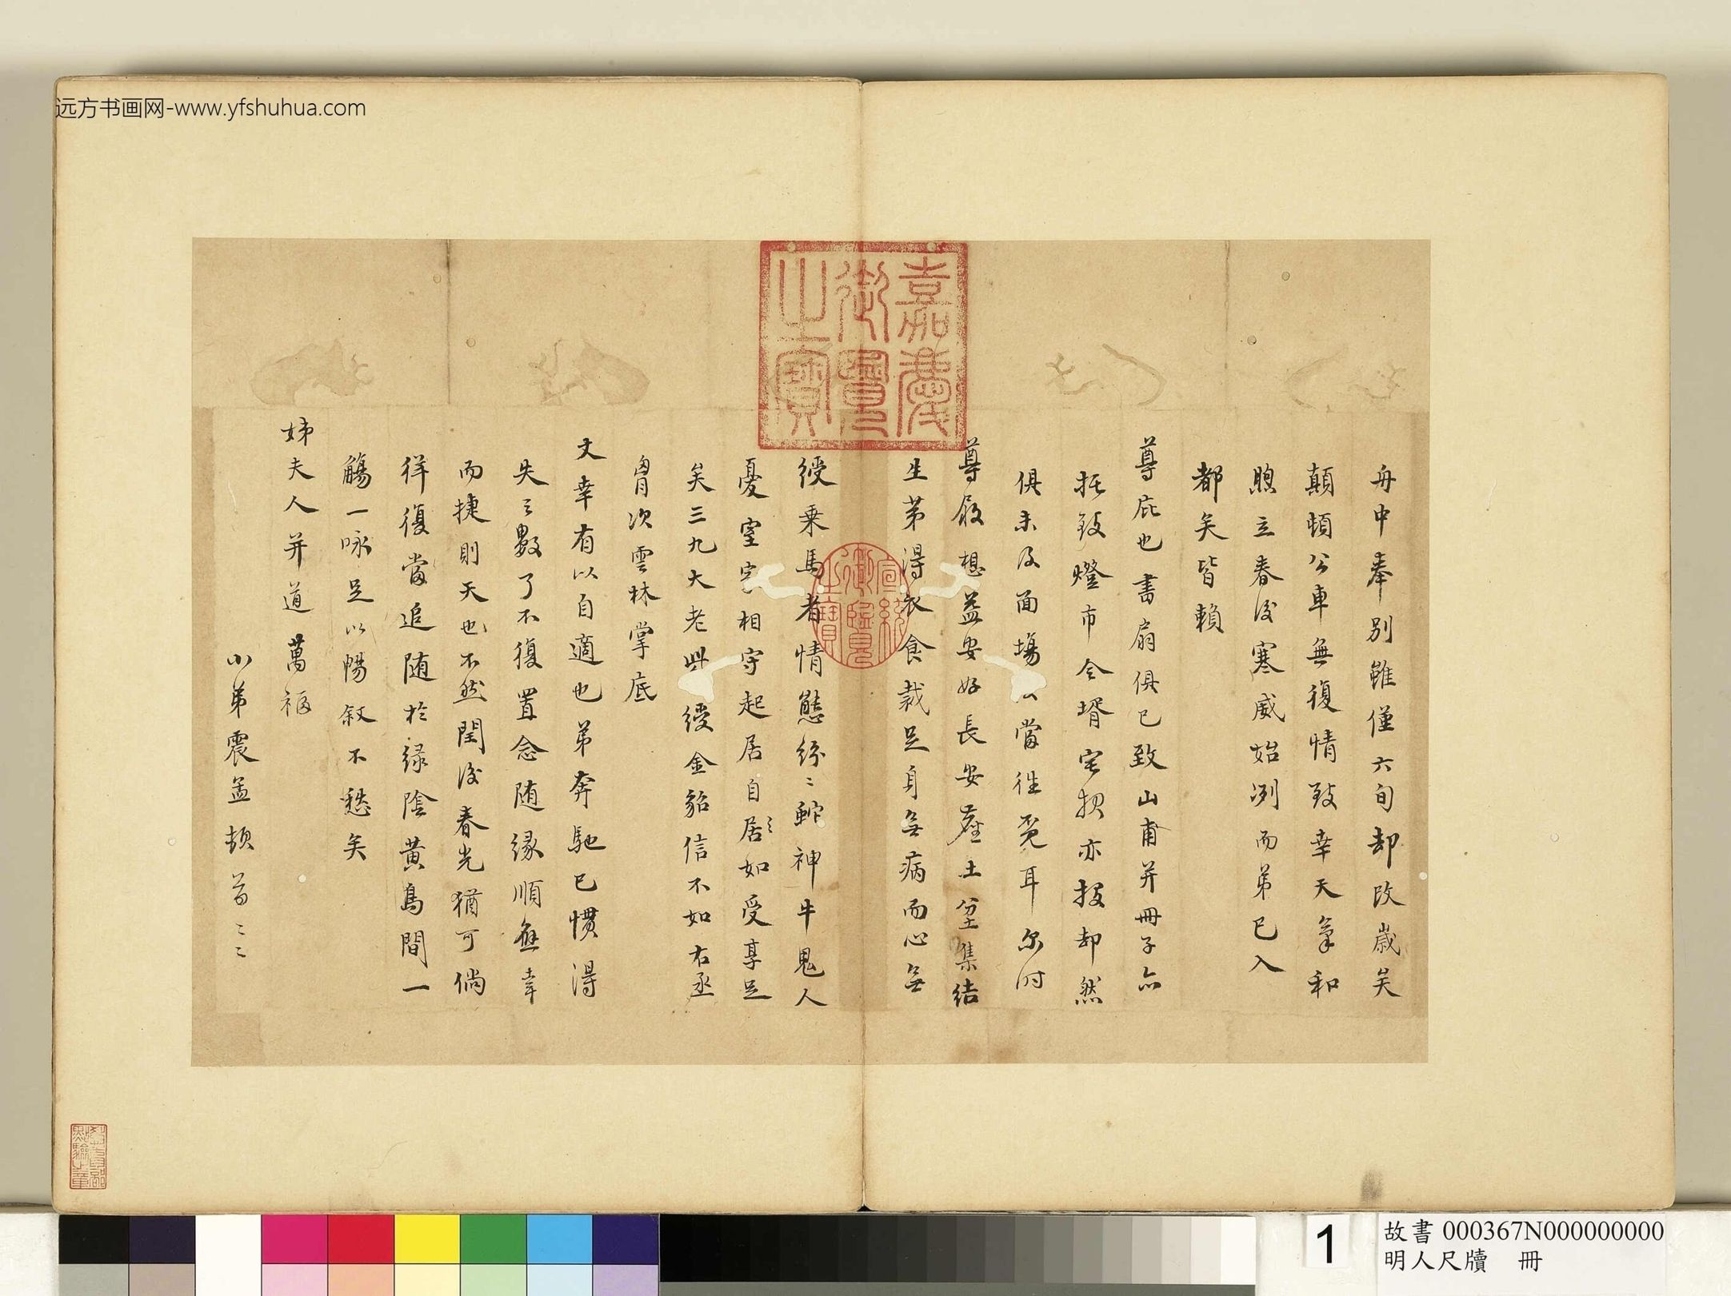 远方书画网-www.yfshuhua.com
嘉慶
御覽
之寶
宣統
御覽
之寶
舟中奉別雖僅六旬却改歲矣
顛頓公車無復情致幸天氣和
煦立春後寒威始冽而弟已入
都矣皆賴
尊庇也書扇俱已致山甫并冊子亦
托致燈市令壻宅報亦投却然
俱未及面場後當往覓耳尔时
尊履想益安好長安塵土坌集結
生第得衣食裁足身無病而心無
綬乘馬者情態紛〻蛇神牛鬼人
憂室家相守起居自居〻如受享足
矣三九大老紫綬金貂信不如右丞
胷次雲林掌底
丈幸有以自適也弟奔馳已慣得
失之數了不復置念随緣順無幸
而捷則天也不然閏後春光猶可倘
徉復當追随於緑陰黄鳥間一
觴一咏足以暢叙不愁矣
姊夫人并道萬福
小弟震孟頓首〻〻
1
故書 000367N000000000
明人尺牘 冊